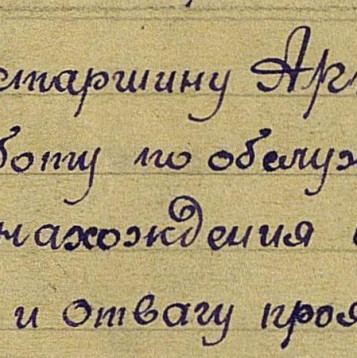 старшину Арт
боту по обслуж
нахождения
и отвагу проя